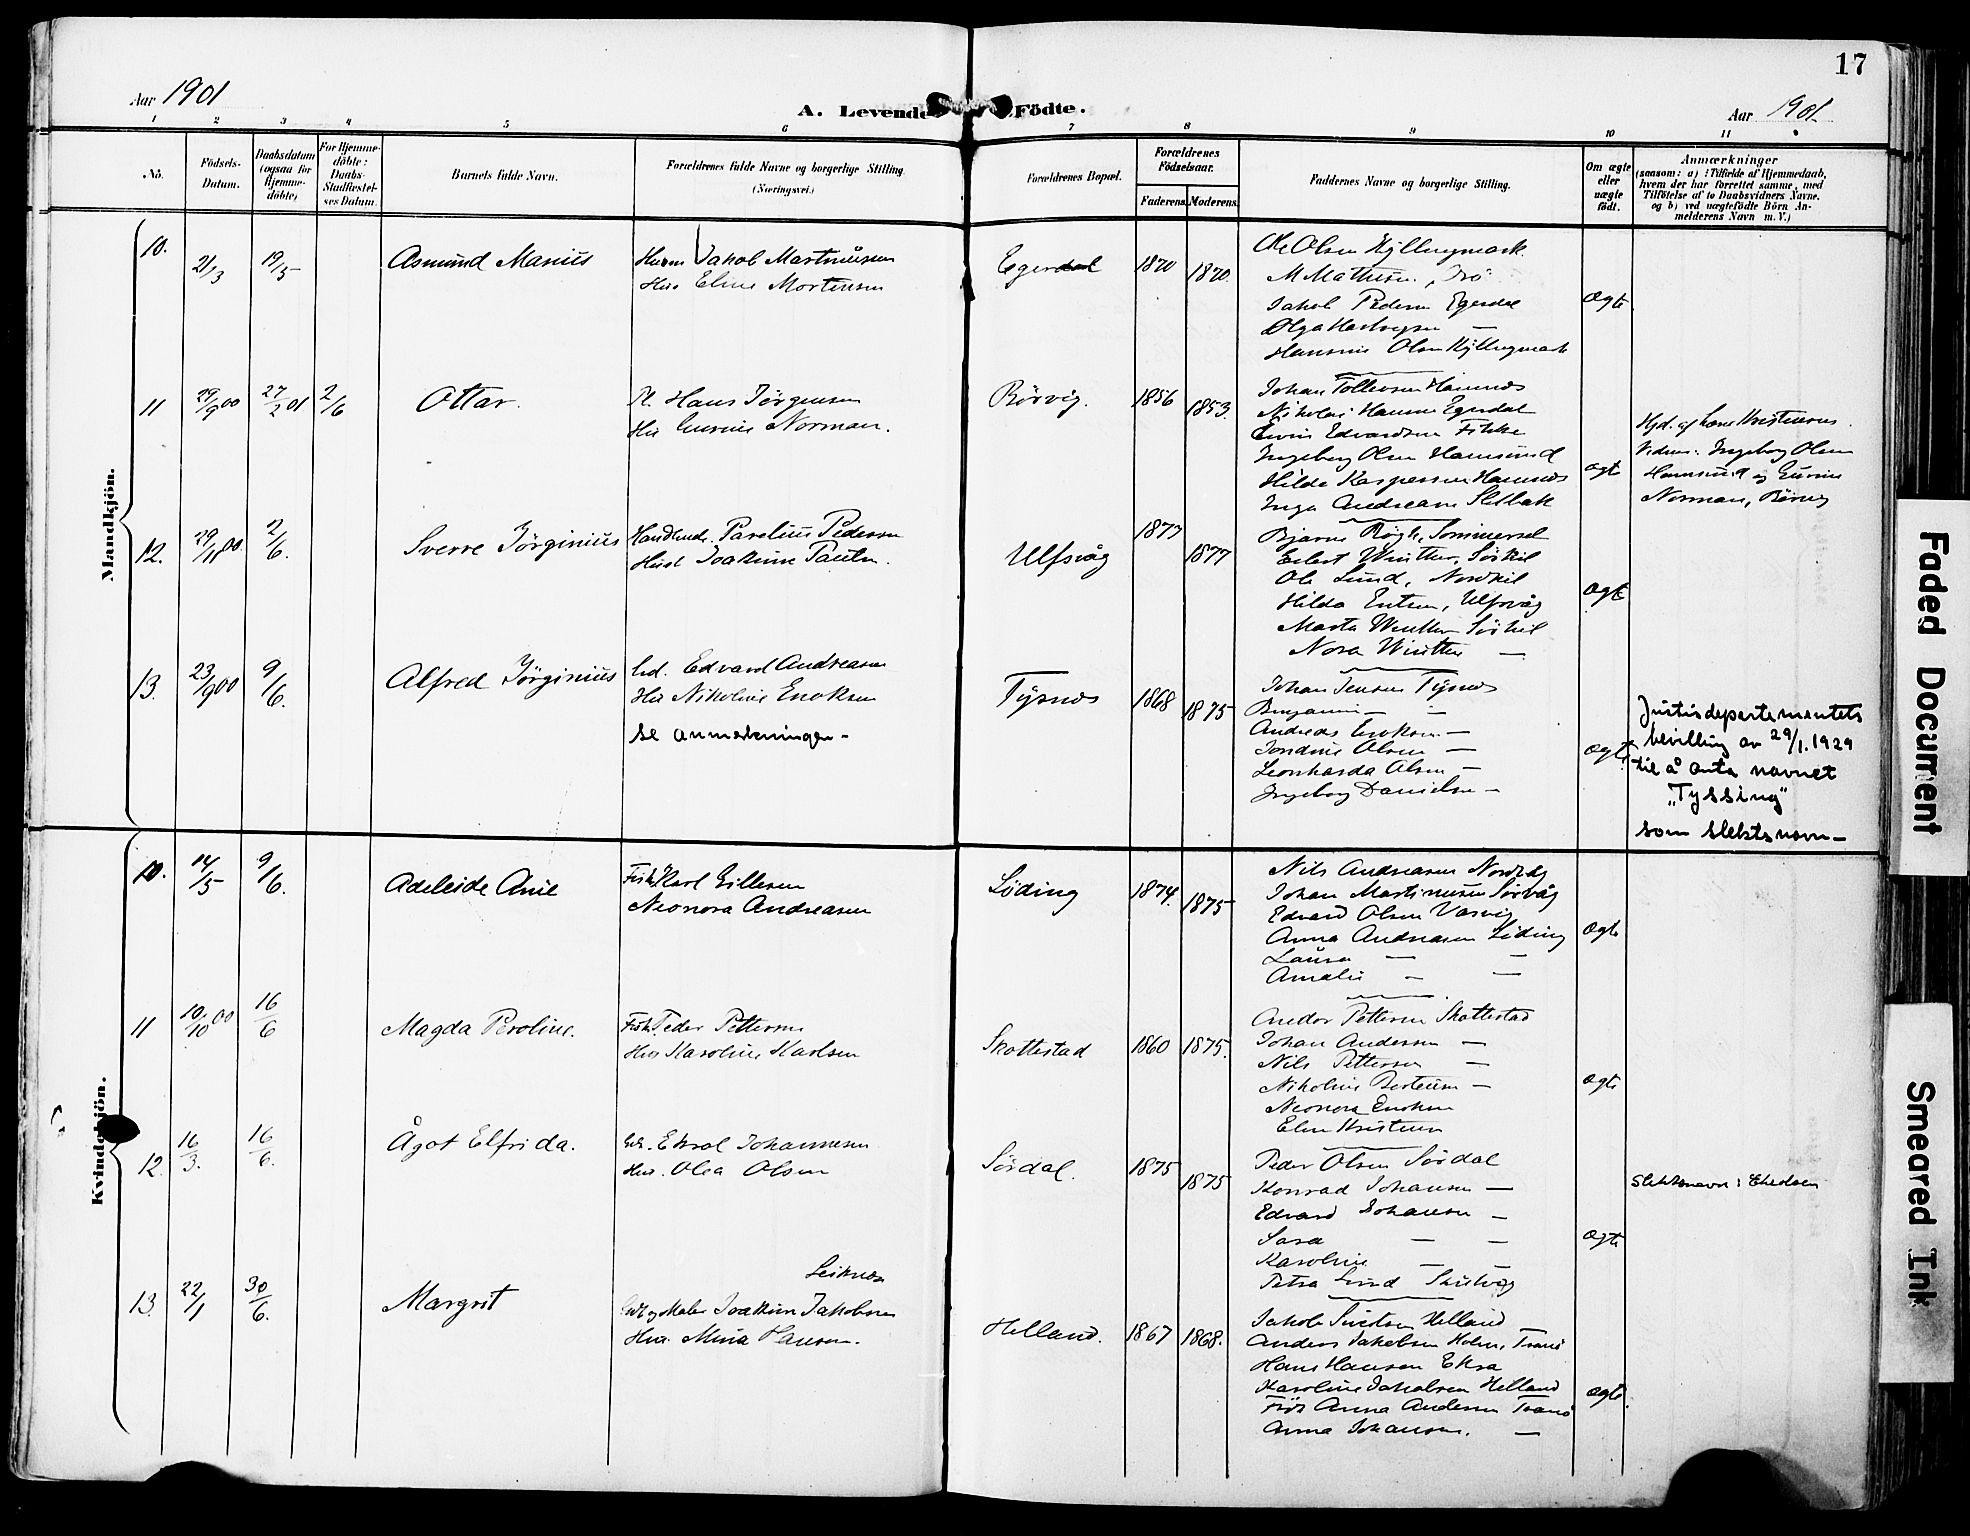 17
Aar 1901
A. Levende Födte.
Aar 1901
1 2 3 4 5 6 7 8 9 10 11
No.
Födsels-Datum.
Daabsdatum (ogsaa for Hjemmedöbte)
For Hjemmedöbte: Daabs-Stadfæstelses Datum.
Barnets fulde Navn.
Forældrenes fulde Navne og borgerlige Stilling. (Næringsvei.)
Forældrenes Bopæl.
Forældrenes Födselsaar.
Faderens Moderens.
Faddernes Navne og borgerlige Stilling.
Om ægte eller uægte født.
Anmærkninger
(saasom: a) i Tilfælde af Hjemmedaab,
hvem der har forrettet samme, med
Tilföielse af to Daabsvidners Navne.
og b) ved uægtefödte Börn An-
melderens Navn m. V.)
Mandkjön.
10. 21/3 19/5 Asmund Marius
Jakob Martinussen
Eline Mortensen
Egerdal 1870 1870
Ole Olsen Kjllingmark
M Mathisen
Jakob Pedersen Egerdal
Olga Hartvigsen —
Olsen Kjllingmark
Ægte
11 29/9 00 27/2 01 2/6 Ottar.
Hans Jörgensen
Norman.
Börvig. 1856 1853.
Johan Tollevsen Hamnes
Nikolai Hansen Egerdal
Edvardsen
Ingeborg Olsen Hamsund
Hilda Kaspersen Hamnes
Inga Andreasen
ægte
Hjd. af Lars Kristensen.
Vidner: Ingeborg Olsen
Hamsund og Gurine
Norman, Börvig
12. 29/11 00. 2/6. Sverre Jörginius
Handlende. Parelius Pedersen
Hust Joakime Paulsen.
Ulfsvåg 1873 1877
Bjarne Rögh, Sommersel
Eilert Winther, Sörkil
Ole Lund, Nordkil
Hilda Entsen, Ulfsvåg
Marta Winther Sörkil
Nora Winther —
Ægte
13. 23/9 00 9/6. Alfred Jörginius
Edvard Andreasen
Nikoline Enoksen
se anmerkningen –
Tysnes 1868 1875
Johan Jensen Tysnes
Benjamin — —
Andreas Enoksen —
Jondine Olsen —
Leonharda Olsen —
Ingeborg Danielsen —
Ægte
Justisdepartementets
bevilling av 29/1.1929
til å anta navnet
„Tyssing"
som slektsnavn –
Kvindekjön.
10. 14/5 9/6. Adeleide Anie
Fisk. Karl Gillesen
Neonora Andreasen
Löding 1874. 1875
Nils Andreasen
Johan Martinusen Sörvåg
Edvard Olsen Vasvig
Anna Andreasen Löding
Laura — —
Amalie — —
Ægte
11 10/10 00 16/6 Magda Peroline.
Fisk. Peder Pettersen
Karoline Karlsen
Skottestad 1860 1875.
Andor Pettersen Skottestad
Johan Andersen —
Nils Pettersen —
Nikoline Berteusen —
Neonora Enoksen
Elen Kristensen
Ægte
12. 16/3. 16/6. Ågot Elfrida.
Johannesen
Olea Olsen
Sördal. 1875 1875
Peder Olsen Sördal
Konrad Johansen —
Edvard Johansen —
Sara — —
Karoline — —
Petra Lund Skutvig
Ægte
Slektsnavn:
13. 22/1 30/6. Margrit
Leiknes
Maler Joakim Jakobsen
Mina Hansen.
Helland. 1867 1868.
Jakob Sivertsen Helland
Anders Jakobsen Holm, Tranö
Hans Hansen
Karoline Jakobsen Helland
Anna Andersen Tranö
Anna Johansen. —
Ægte.
Faded Document
Smeared Ink